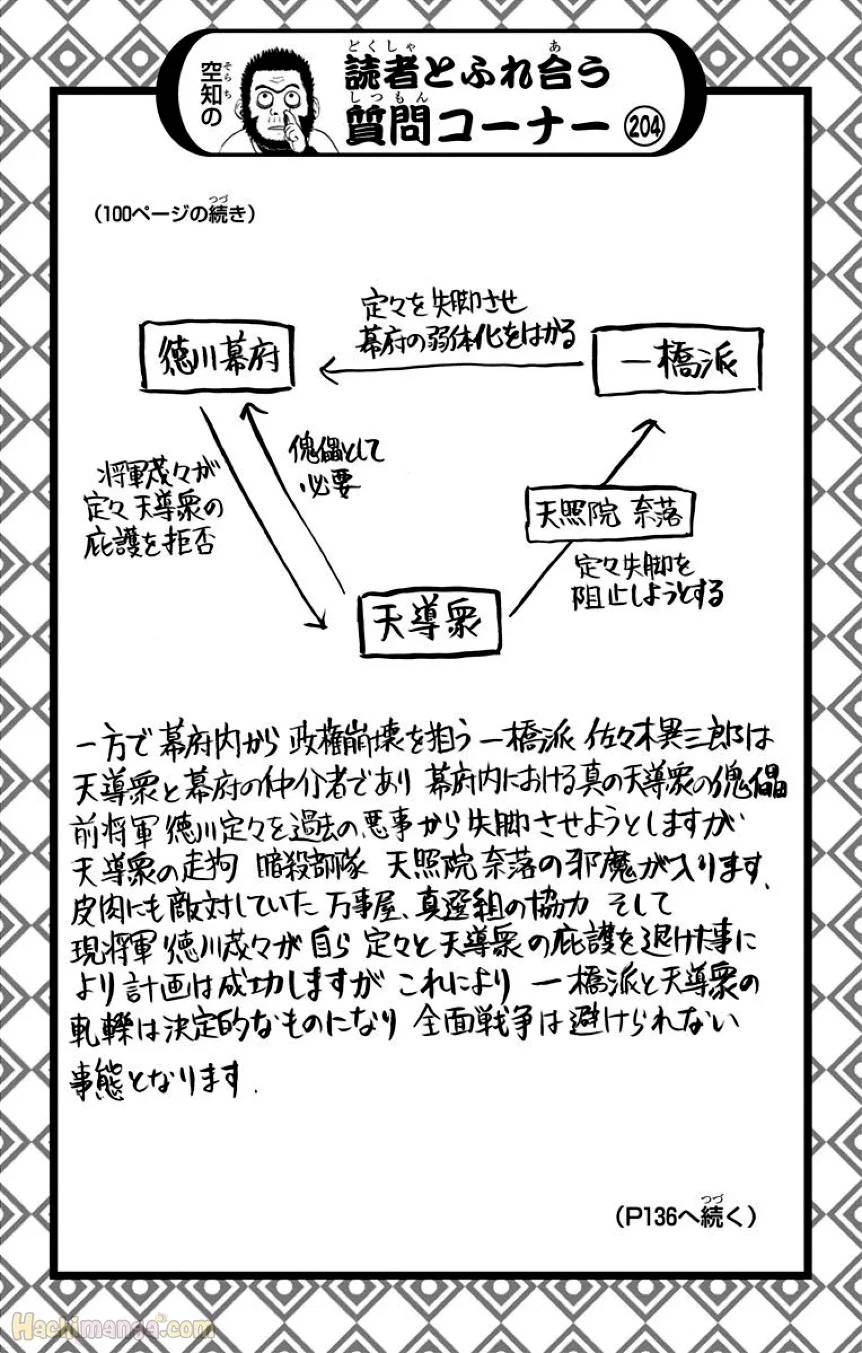 空知の
読者とふれ合う
質問コーナー 204
(100ページの続き)
定々を失脚させ
幕府の弱体化をはかる
徳川幕府
一橋派
将軍茂々が
定々 天導衆の
庇護を拒否
傀儡として
必要
天照院 奈落
定々失脚を
阻止しようとする
天導衆
一方で幕府内から 政権崩壊を狙う 一橋派 佐々木異三郎は
天導衆と幕府の仲介者であり 幕府内における真の天導衆の傀儡
前将軍 徳川定々を過去の悪事から失脚させようとしますが
天導衆の走狗 暗殺部隊 天照院奈落の邪魔が入ります.
皮肉にも敵対していた 万事屋、真選組の協力 そして
現将軍 徳川茂々が 自ら 定々と天導衆の庇護を退けた事に
より計画は成功しますが これにより 一橋派と天導衆の
軋轢は決定的なものになり 全面戦争は避けられない
事態となります.
(P136へ続く)
Hachimanga.com